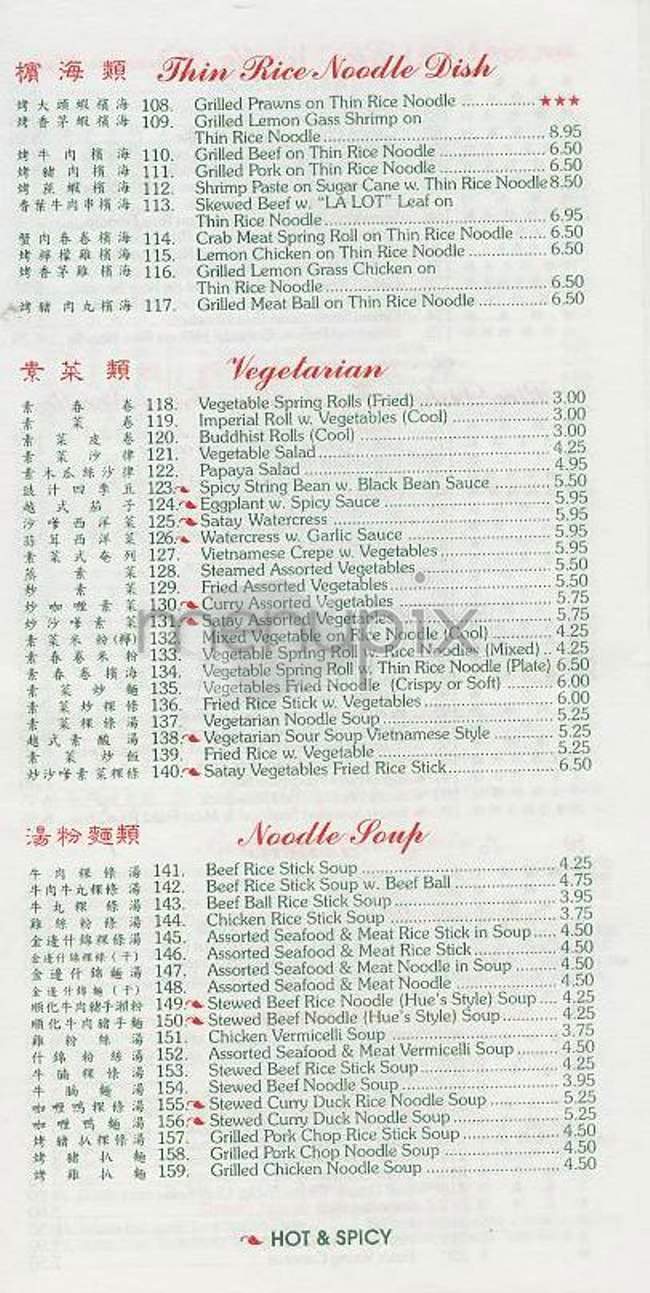 檳海類 Thin Rice Noodle Dish
烤大頭蝦檳海 108. Grilled Prawns on Thin Rice Noodle ............... ★★★
烤香茅蝦檳海 109. Grilled Lemon Gass Shrimp on
Thin Rice Noodle ............... 8.95
烤牛肉檳海 110. Grilled Beef on Thin Rice Noodle ............... 6.50
烤豬肉檳海 111. Grilled Pork on Thin Rice Noodle ............... 6.50
烤蔗蝦檳海 112. Shrimp Paste on Sugar Cane w. Thin Rice Noodle 8.50
香葉牛肉串檳海 113. Skewed Beef w. “LA LOT” Leaf on
Thin Rice Noodle ............... 6.95
蟹肉春卷檳海 114. Crab Meat Spring Roll on Thin Rice Noodle ...... 6.50
烤檸檬雞檳海 115. Lemon Chicken on Thin Rice Noodle ............... 6.50
烤香茅雞檳海 116. Grilled Lemon Grass Chicken on
Thin Rice Noodle ............... 6.50
烤豬肉丸檳海 117. Grilled Meat Ball on Thin Rice Noodle ............... 6.50
素菜類 Vegetarian
素春卷 118. Vegetable Spring Rolls (Fried) ............... 3.00
素菜卷 119. Imperial Roll w. Vegetables (Cool) ............... 3.00
素菜皮卷 120. Buddhist Rolls (Cool) ............... 3.00
素菜沙律 121. Vegetable Salad ............... 4.25
素木瓜絲沙律 122. Papaya Salad ............... 4.95
豉汁四季豆 123. Spicy String Bean w. Black Bean Sauce ............... 5.50
越式茄子 124. Eggplant w. Spicy Sauce ............... 5.95
沙嗲西洋菜 125. Satay Watercress ............... 5.95
蒜茸西洋菜 126. Watercress w. Garlic Sauce ............... 5.95
素菜式奄列 127. Vietnamese Crepe w. Vegetables ............... 5.95
蒸素菜 128. Steamed Assorted Vegetables ............... 5.50
炒素菜 129. Fried Assorted Vegetables ............... 5.50
炒咖喱素菜 130. Curry Assorted Vegetables ............... 5.75
炒沙嗲素菜 131. Satay Assorted Vegetables ............... 5.75
素菜米粉 132. Mixed Vegetable on Rice Noodle (Cool) ............... 4.25
素春卷米粉 133. Vegetable Spring Roll w. Rice Noodle (Mixed) .. 4.25
素春卷檳海 134. Vegetable Spring Roll w. Thin Rice Noodle (Plate) 6.50
素菜炒麵 135. Vegetables Fried Noodle (Crispy or Soft) ............... 6.00
素菜炒粿條 136. Fried Rice Stick w. Vegetables ............... 6.00
素菜粿條湯 137. Vegetarian Noodle Soup ............... 5.25
越式素酸湯 138. Vegetarian Sour Soup Vietnamese Style ............... 5.25
素菜炒飯 139. Fried Rice w. Vegetable ............... 5.25
炒沙嗲素菜粿條 140. Satay Vegetables Fried Rice Stick ............... 6.50
湯粉麵類 Noodle Soup
牛肉粿條湯 141. Beef Rice Stick Soup ............... 4.25
牛肉牛丸粿條湯 142. Beef Rice Stick Soup w. Beef Ball ............... 4.75
牛丸粿條湯 143. Beef Ball Rice Stick Soup ............... 3.95
雞絲粉條湯 144. Chicken Rice Stick Soup ............... 3.75
金邊什錦粿條湯 145. Assorted Seafood & Meat Rice Stick in Soup ..... 4.50
金邊什錦粿條(干) 146. Assorted Seafood & Meat Rice Stick ............... 4.50
金邊什錦麵湯 147. Assorted Seafood & Meat Noodle in Soup ........ 4.50
金邊什錦麵(干) 148. Assorted Seafood & Meat Noodle ............... 4.50
順化牛肉豬手瀨粉 149. Stewed Beef Rice Noodle (Hue's Style) Soup .... 4.25
順化牛肉豬手麵 150. Stewed Beef Noodle (Hue's Style) Soup ............ 4.25
雞粉絲湯 151. Chicken Vermicelli Soup ............... 3.75
什錦粉絲湯 152. Assorted Seafood & Meat Vermicelli Soup ........ 4.50
牛腩粿條湯 153. Stewed Beef Rice Stick Soup ............... 4.25
牛腩麵湯 154. Stewed Beef Noodle Soup ............... 3.95
咖喱鴨粿條湯 155. Stewed Curry Duck Rice Noodle Soup ............... 5.25
咖喱鴨麵湯 156. Stewed Curry Duck Noodle Soup ............... 5.25
烤豬扒粿條湯 157. Grilled Pork Chop Rice Stick Soup ............... 4.50
烤豬扒麵 158. Grilled Pork Chop Noodle Soup ............... 4.50
烤雞扒麵 159. Grilled Chicken Noodle Soup ............... 4.50
HOT & SPICY
menupix